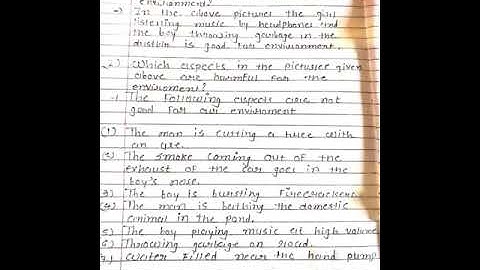 environment?
→ In the above pictures the girl
listening music by headphones and
the boy throwing garbage in the
dustbin is good for environment.
2) Which aspects in the pictures given
above are harmful for the
enviroment?
→ The following aspects are not
good for our enviroment
(1) The man is cutting a tree with
an axe.
(2) The smoke coming out of the
exhaust of the car goes in the
boy's nose.
3) The boy is bursting firecrackers.
(4) The man is bathing the domestic
animal in the pond.
5) The boy playing music at high volume
6) Throwing garbage on road.
7) Water filled near the hand pump